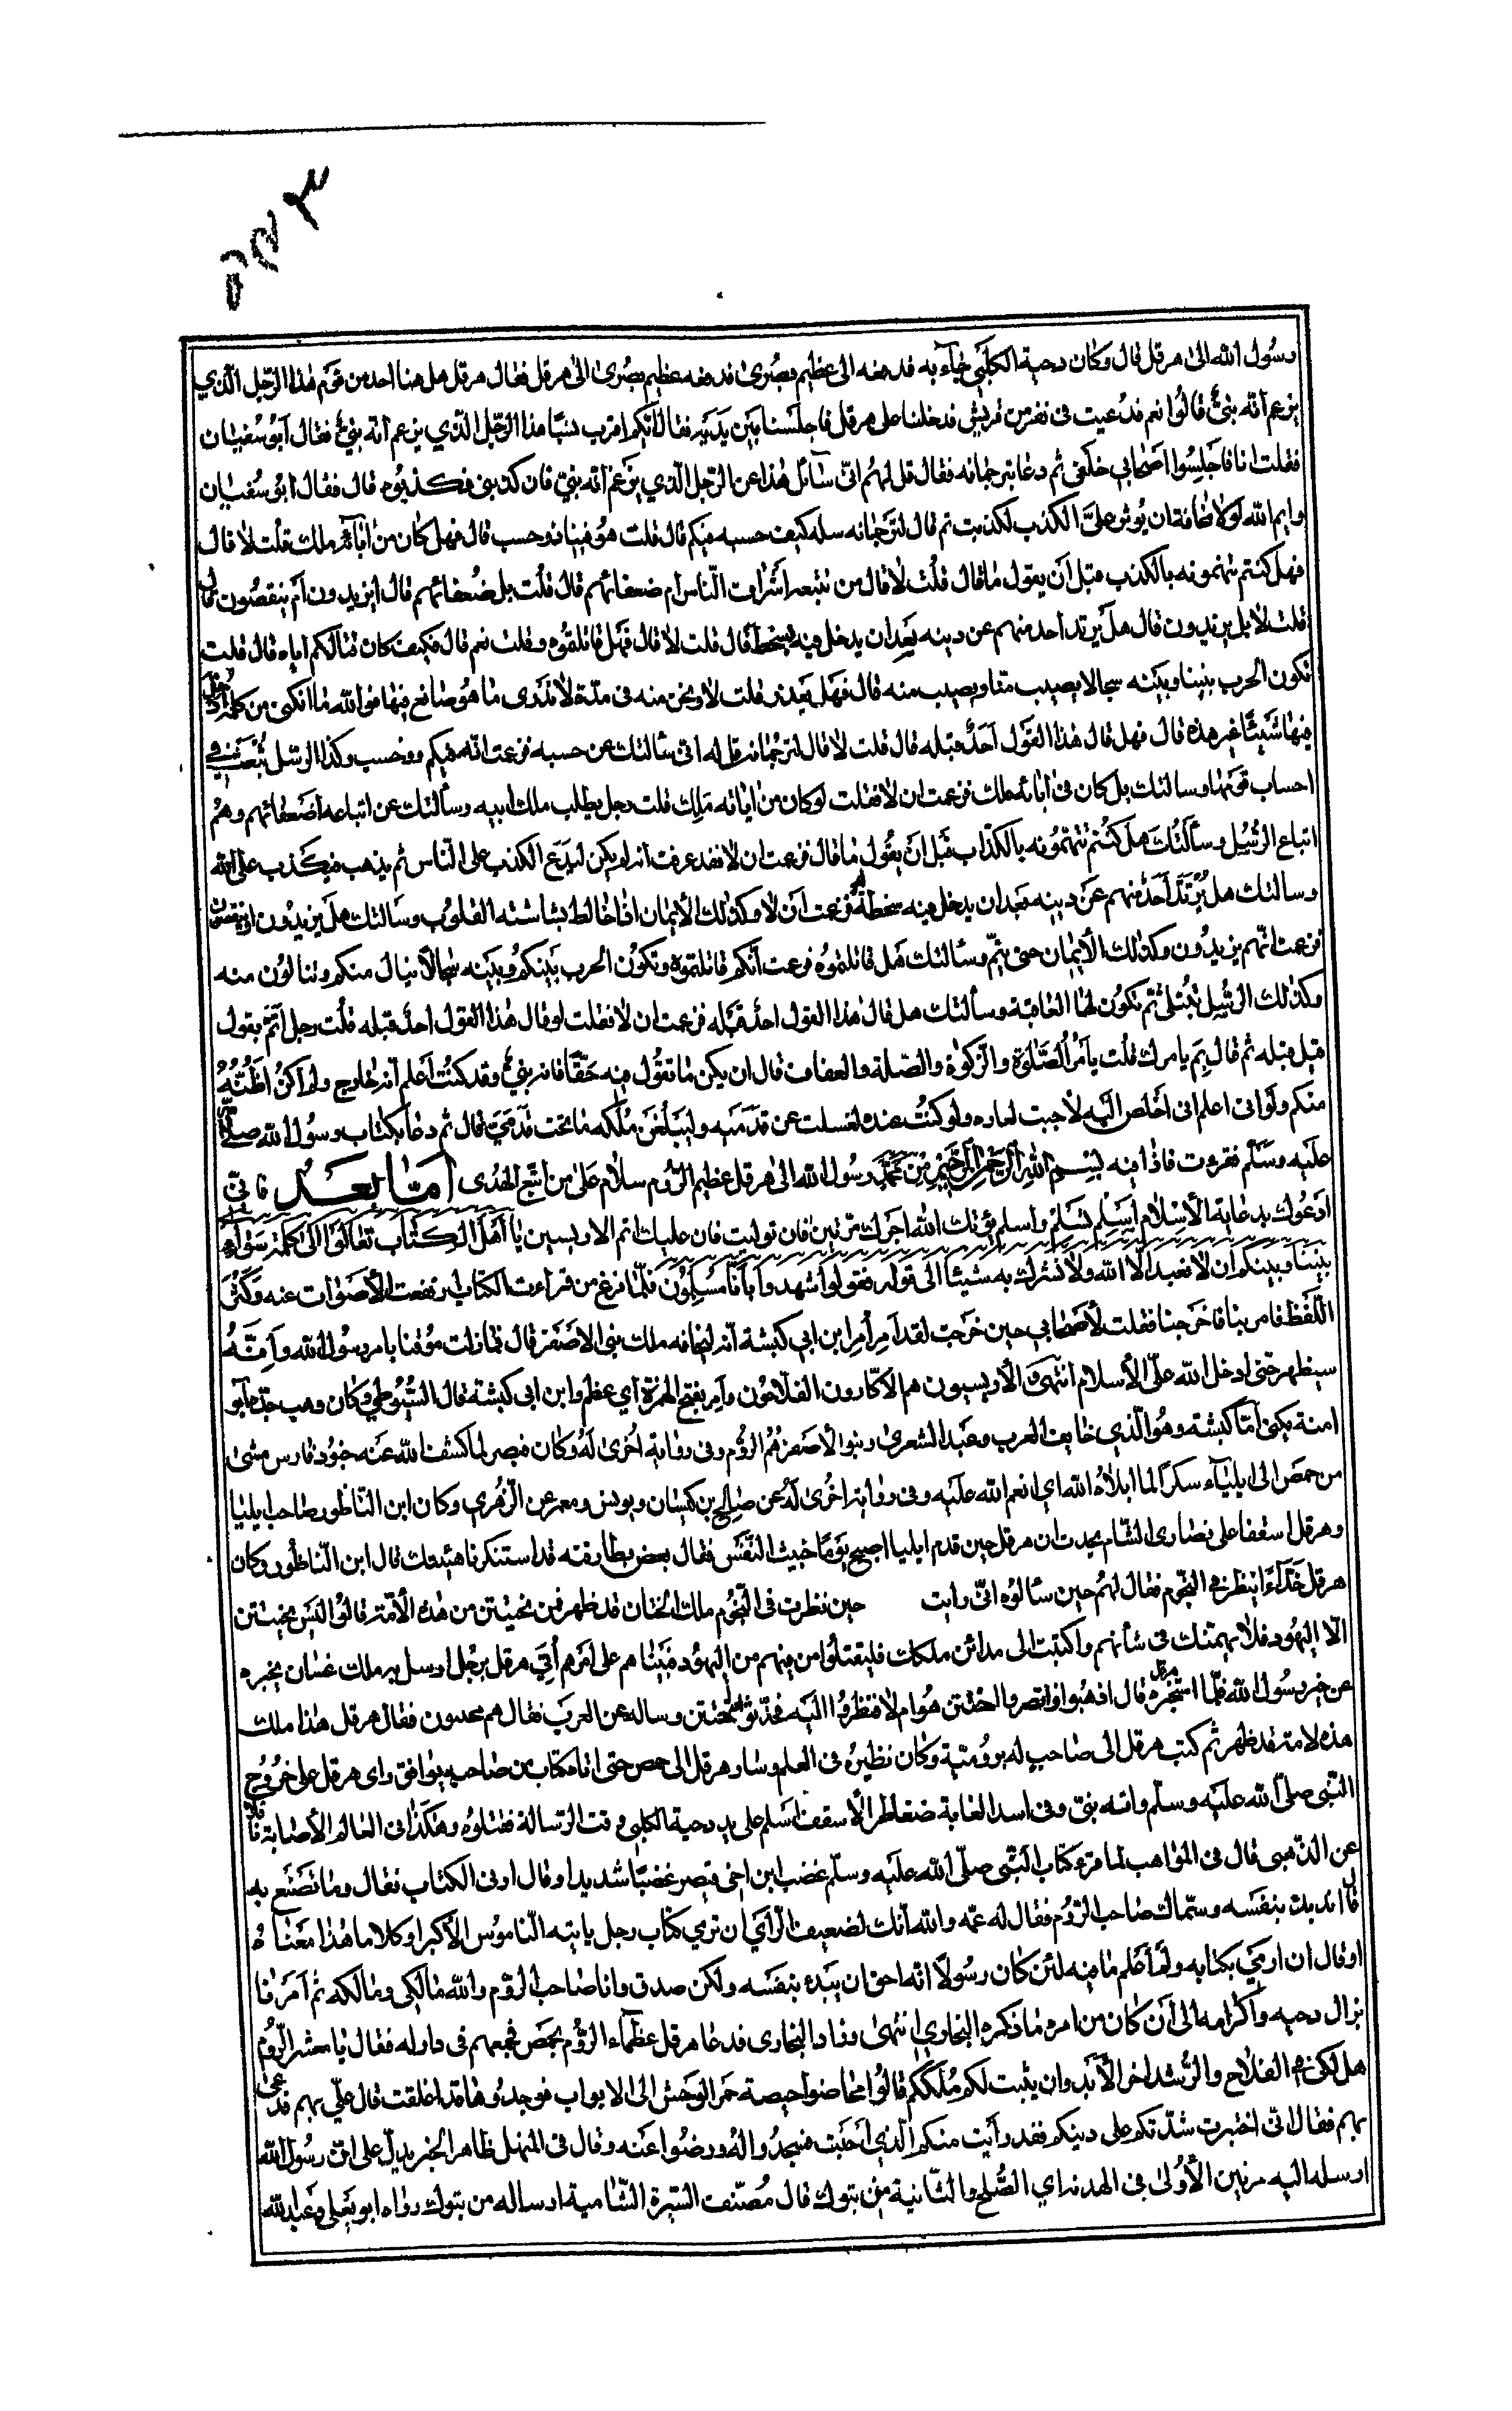 رسول الله الى هرقل قال وكان دحية الكلبي جاء به فدفعه الى عظيم بصرى فدفعه عظيم بصرى الى هرقل فقال هرقل هل هنا احد من قوم هذا الرجل الذي
يزعم انه نبي قالوا نعم فدعيت في نفر من قريش فدخلنا على هرقل فاجلسنا بين يديه فقال ايكم اقرب نسبا هذا الرجل الذي يزعم انه نبي فقال ابو سفيان
فقلت انا فاجلسوا اصحابي خلفي ثم دعا بترجمانه فقال قل لهم اني سائل هذا عن الرجل الذي يزعم انه نبي فان كذبني فكذبوه قال فقال ابو سفيان
وايم الله لولا مخافة ان يوثر علي الكذب لكذبت ثم قال لترجمانه سله كيف حسبه فيكم قال قلت هو فينا ذو حسب قال فهل كان من آبائه ملك قلت لا قال
فهل كنتم تتهمونه بالكذب قبل ان يقول ما قال قلت لا قال من تتبعه اشراف الناس ام ضعفائهم قال قلت بل ضعفائهم قال ايزيدون ام ينقصون قال
قلت لا بل يزيدون قال هل يرتد احد منهم عن دينه بعد ان يدخل فيه سخطا قال قلت لا قال فهل قاتلتموه وقلت نعم قال فكيف كان قتالكم اياه قال قلت
تكون الحرب بيننا وبينه سجالا يصيب منا ونصيب منه قال فهل يغدر قلت لا ونحن منه في مدة لا ندرى ما هو صانع فيها فوالله ما امكنى من كلمة ادخل
فيها شيئا غير هذه قال فهل قال هذا القول احد قبله قال قلت لا قال لترجمانه قل له اني سالتك عن حسبه فزعمت انه فيكم ذو حسب وكذا الرسل تبعث في
احساب قومها وسالتك هل كان في آبائه ملك فزعمت ان لا فقلت لو كان من ابائه ملك قلت رجل يطلب ملك ابيه وسألتك عن اتباعه اضعفائهم وهم
اتباع الرسل وسألتك هل كنتم تتهمونه بالكذاب قبل ان يقول ما قال فزعمت ان لا فقد عرفت انه لم يكن ليدع الكذب على الناس ثم يذهب فيكذب على الله
وسالتك هل يرتد احد منهم عن دينه بعد ان يدخل فيه سخطة فزعمت ان لا وكذلك الايمان اذا خالط بشاشته القلوب وسالتك هل يزيدون او ينقصون
فزعمت انهم يزيدون وكذلك الايمان حتى يتم وسألتك هل قاتلتموه فزعمت انكم قاتلتموه وتكون الحرب بينكم وبينه سجالا ينال منكم وتنالون منه
وكذلك الرسل تبتلى ثم تكون لها العاقبة وسألتك هل قال هذا القول احد قبله فزعمت ان لا فقلت لو قال هذا القول احد قبله قلت رجل ائتم بقول
قيل قبله ثم قال بم يامرك قلت يأمر الصلوة والزكوة والصلة والعفاف قال ان يكن ما تقول فيه حقا فانه نبي وقد كنت اعلم انه خارج ولم اكن اظنه
منكم ولو اني اعلم اني اخلص اليه لاحببت لقاءه ولو كنت عنده لغسلت عن قدميه وليبلغن ملكه ما تحت قدمي قال ثم دعا بكتاب رسول الله صلى الله
عليه وسلم فقرءت فاذا فيه بسم الله الرحمن الرحيم من محمد رسول الله الى هرقل عظيم الروم سلام على من اتبع الهدى اما بعد فاني
ادعوك بدعاية الاسلام اسلم تسلم واسلم يؤتك الله اجرك مرتين فان توليت فان عليك اثم الاريسين يا اهل الكتاب تعالوا الى كلمة سواء
بيننا وبينكم ان لا نعبد الا الله ولا نشرك به شيئا الى قوله فقولوا اشهدوا بانا مسلمون فلما فرغ من قراءت الكتاب ارتفعت الاصوات عنه وكثر
اللغظ فامر بنا فاخرجنا فقلت لاصحابي حين خرجت لقد امر امر ابن ابي كبشة انه ليخافه ملك بني الاصفر قال فما زلت موقنا بامر رسول الله وانه
سيظهر حتى ادخل الله علي الاسلام انتهى والاريسيون هم الاكارون الفلاحون وامر بفتح الهمزة اي عظم وابن ابي كبشة قال السيوطي وكان وهب جد ابو
امنة يكنى أبا كبشة وهو الذي خالف العرب وعبد الشعرى وبنوا الاصفر هم الروم وفى رواية اخرى له وكان قيصر لما كشف الله عنه جنود فارس مشى
من حمص الى ايلياء سكرا لما ابلاه الله اي انعم الله عليه وفى رواية اخرى له عن صالح بن كيسان ويونس ومعمر عن الزهري وكان ابن الناظور صاحب ايليا
وهرقل اسقفا على نصارى الشام يحدث ان هرقل حين قدم ايليا اصبح يوما خبيث النفس فقال بعض بطارقته قد استنكرنا هيئتك قال ابن الناظور وكان
هرقل حزاءً ينظر في النجوم فقال لهم حين سألوه اني رايت حين نظرت في النجوم ملك الختان قد ظهر فمن يختتن من هذه الامة قالوا اليس يختتن
الا اليهود فلا يهمنك في شأنهم واكتب الى مدائن ملكك فليقتلوا من فيهم من اليهود فبينا هم على امرهم أتي هرقل برجل ارسل به ملك غسان يخبره
عن خبر رسول الله فلما استخبره هرقل قال اذهبوا وابصروا اختتن هو ام لا فنظروا اليه فحدثوه انه مختتن وساله عن العرب فقال هم يختتنون فقال هرقل هذا ملك
هذه لامة قد ظهر ثم كتب هرقل الى صاحب له برومية وكان نظيره في العلم وسار هرقل الى حمص حتى اتاه كتاب من صاحبه يوافق راى هرقل على خروج
النبى صلى الله عليه وسلم وانه نبي وفي اسد الغابة ضغاطر الاسقف اسلم على يد دحية الكلبى وقت الرسالة فقتلوه وهكذا في الاصابة
عن الذهبى قال في المواهب لما قرء كتاب النبي صلى الله عليه وسلم غضب ابن اخى قيصر غضبا شديدا وقال ارنى الكتاب فقال وما تصنع به
قال انه بدء بنفسه وسماك صاحب الروم فقال له عمه والله انك لضعيف الرأي ان ترمي كتاب رجل ياتيه الناموس الاكبر او كلاما هذا معناه
او قال ان ارمي بكتابه ولم اعلم ما فيه لئن كان رسولا انه احق ان يبدء بنفسه ولكن صدق وانا صاحب الروم والله مالكى ومالكه ثم امرنا
بزال دحيه واكرامه الى ان كان من امره ما ذكره البخاري انتهى وزاد البخارى فدعا هرقل عظماء الروم بحمص فجمعهم في دار له فقال يا معشر الروم
هل لكم في الفلاح والرشد اخر الابد وان يثبت لكم ملككم قالوا فحاصوا حيصة حمر الوحش الى الابواب فوجدوها قد اغلقت قال علي بهم فدعى
بهم فقال انى اختبرت شدتكم على دينكم فقد رأيت منكم الذي احببت فسجدوا له ورضوا عنه وقال في المنهل ظاهر الخبر يدل على ان رسول الله
ارسله اليه مرتين الاولى في الهدنة اي الصلح والثانية من تبوك قال مصنف السيرة الشامية ارساله من تبوك رواه ابو يعلى وعبد الله